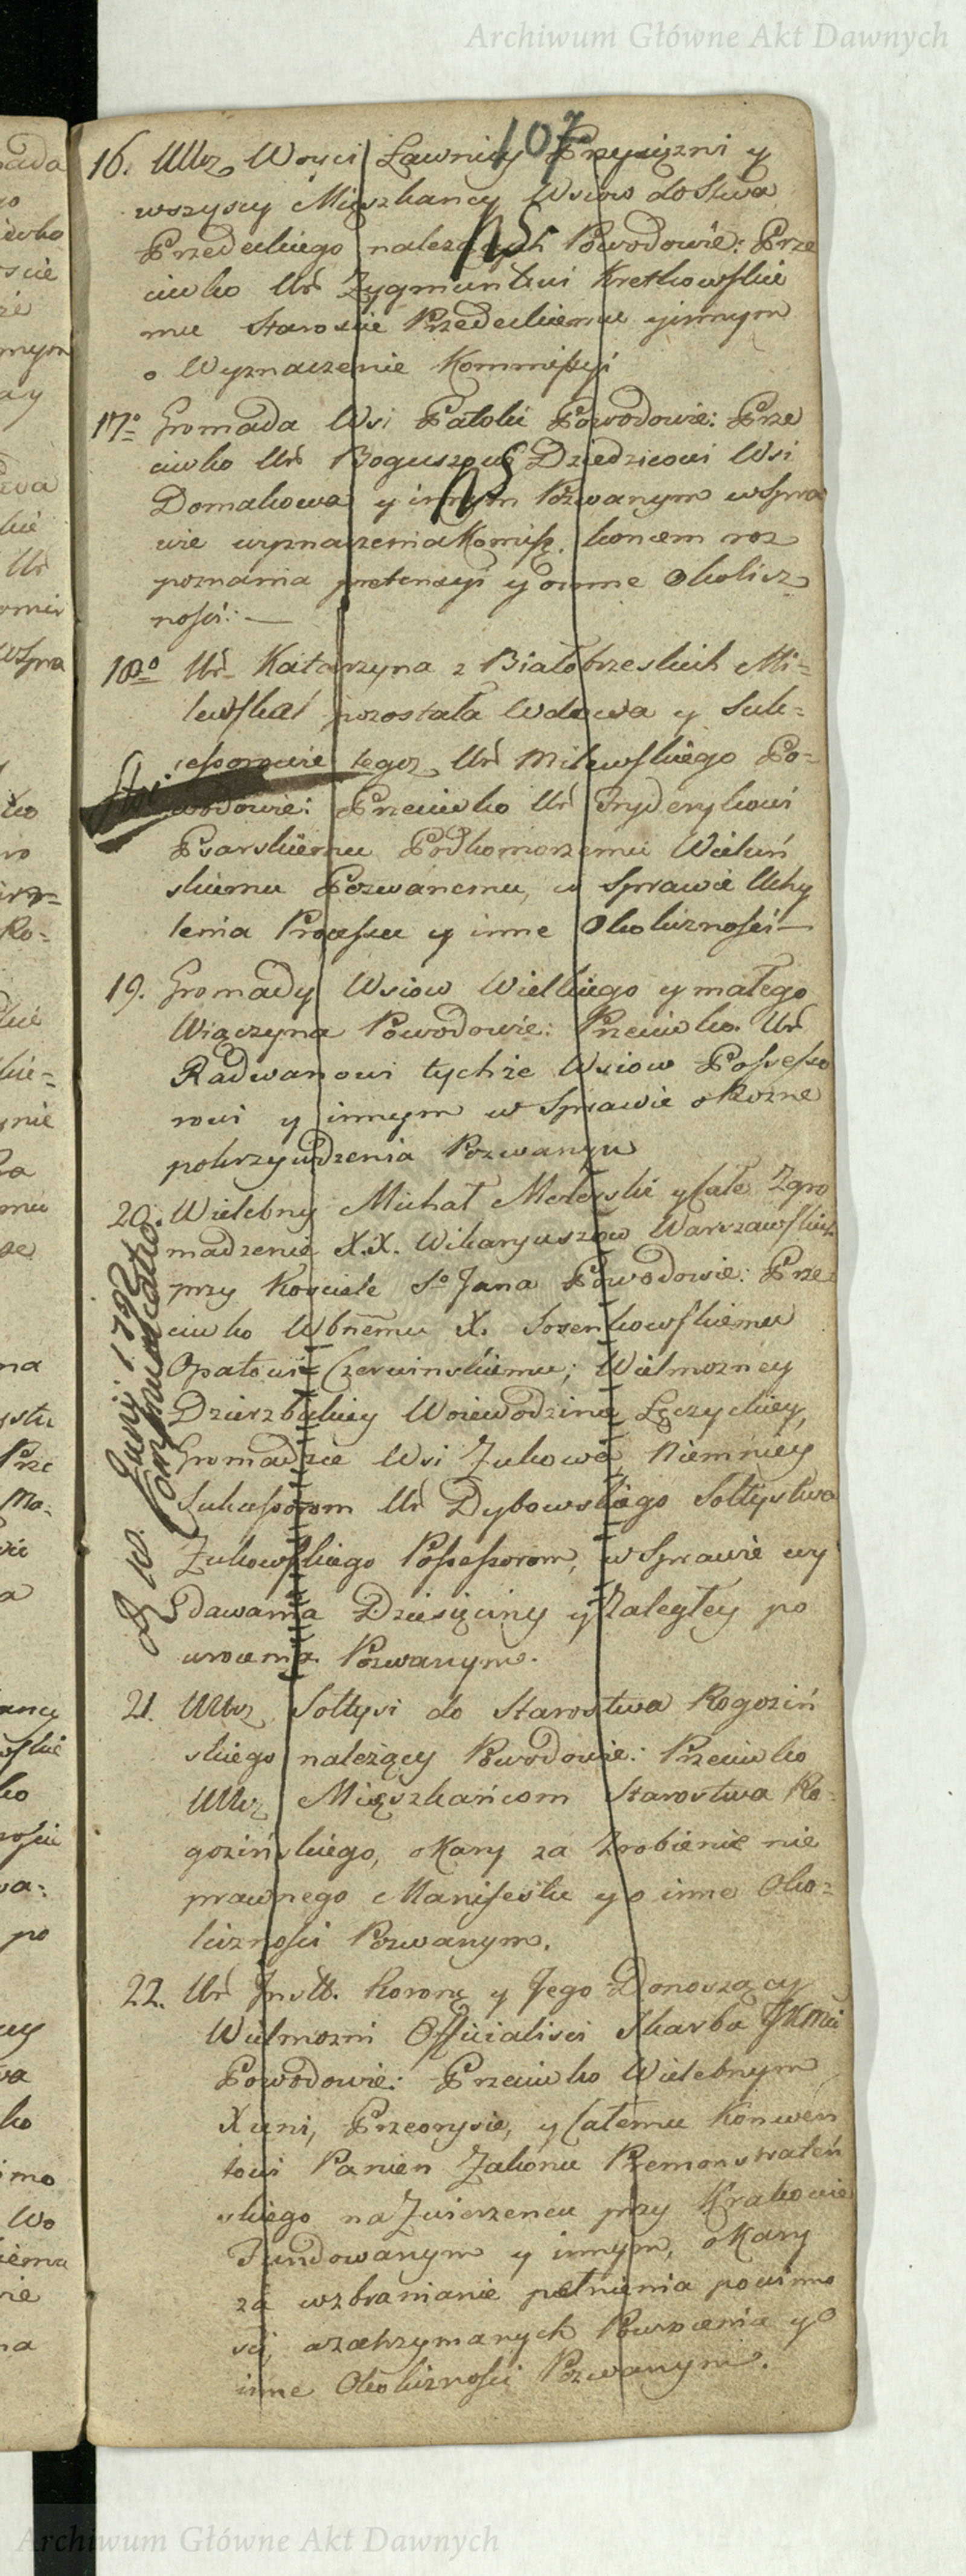 Archiwum Główne Akt Dawnych
107
16. UUcz. Woyci Ławnicy Przysiężni y
wszyscy Mieszkancy Wsiow do Stwa
Przedeckiego należących Powodowie: Prze
ciwko Ur Zygmuntowi Kretkowskie
mu Staroście Przedeckiemu y innym
o Wyznaczenie Kommissyi
17o Gromada Wsi Patoki Powodowie: Prze
ciwko Ur Boguszowi Dziedzicowi Wsi
Domakowa y innym Pozwanym w Spra
wie wyznaczenia Komiss. koncem roz
poznania pretensyi y o inne Okolicz
ności: —
18o Ur Katarzyna z Białobrzeskich Mi=
lewska pozostała Wdowa y Suk=
cessorowie tegoż Ur Milewskiego Po=
wodowie: Przeciwko Ur Fryderykowi
Psarskiemu Podkomorzemu Wieluń
skiemu Pozwanemu, w Sprawie Uchy
lenia Processu y inne Okoliczności —
19. Gromady Wsiow Wielkiego y małego
Wiączyna Powodowie: Przeciwko Ur
Radwanowi tychże Wsiow Possesso
rowi y innym w Sprawie o Rożne
pokrzywdzenia Pozwanym
20. Wielebny Michał y Całe Zgro
madzenie X.X. Wikaryuszow Warszawskich
przy Kościele So Jana Powodowie: Prze=
ciwko Wbnemu X. Sosenkowskiemu
Opatowi Czerwinskiemu; Wielmozney
Dzierzbickiey Woiewodzinie Łęczyckiey,
Gromadzie Wsi Zukowa, Niemniey
Sukcessorom Ur Dybowskiego Sołtystwa
Zukowskiego Possessorom, w Sprawie wy
dawania Dziesięciny y Zaległey po
wrocenia Pozwanym.
Junij 1792
Communicatio
21. UUcz. Sołtysi do Starostwa Rogoziń
skiego należący Powodowie: Przeciwko
UUcz. Mięszkańcom Starostwa Ro=
gozińskiego, o Kary za Zrobienie nie
prawnego Manifestu y o inne Oko=
liczności Pozwanym.
22. Ur Instt. Koronę y Jego Donoszący
Wielmozni Officialisci Skarbu JKMci
Powodowie: Przeciwko Wielebnym
Xieni, Przeorysie, y Całemu Konwen
towi Panien Zakonu Premonstrateń
skiego na Zwierzencu przy Krakowie
Fundowanym y innym, o Kary
za wzbranianie pełnienia powinno
sci, a zatrzymanych Powrocenia y o
inne Okoliczności Pozwanym.
Archiwum Główne Akt Dawnych